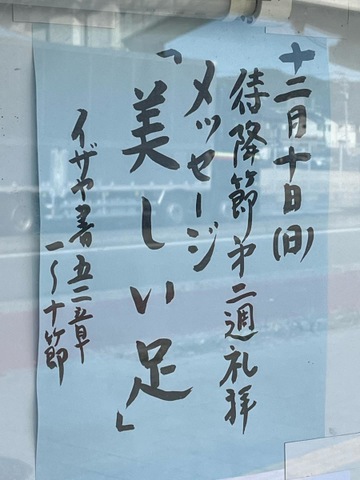 十二月十日(日)
待降節第二週礼拝
メッセージ
「美しい足」
イザヤ書五二章
一〜十節